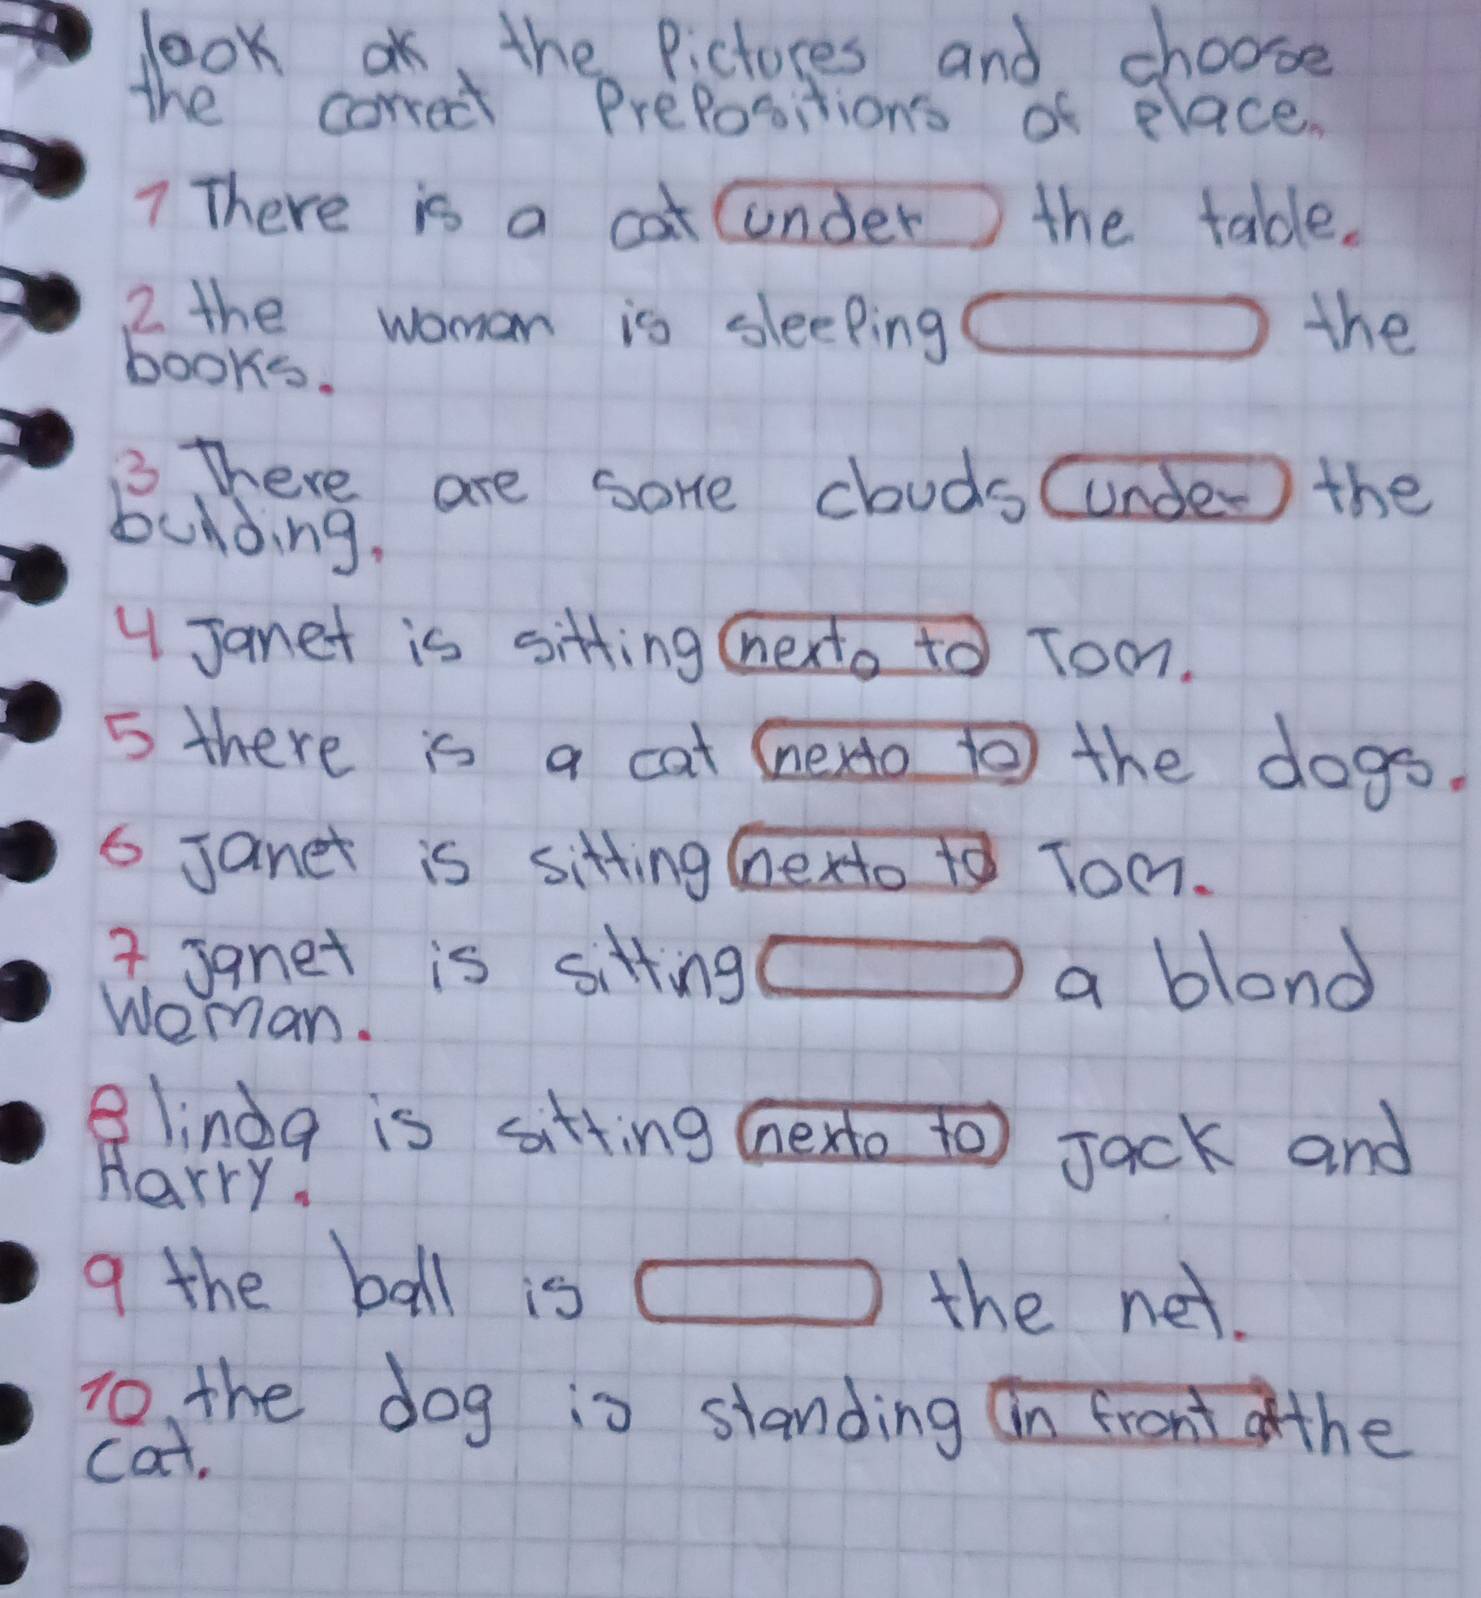 look ak the Pictures and choose
the correct Prepositions of place.
1 There is a cat under the table.
2 the woman is sleeping the
books.
3 There are some clouds under the
building.
4 Janet is sitting nexto to Tom.
5 there is a cat nexto to the dogs.
6 Janet is sitting nexto to Tom.
7 Janet is sitting a blond
Woman.
8 linda is sitting nexto to Jack and
Harry.
9 the ball is the net.
10 the dog is standing in front of the
cat.